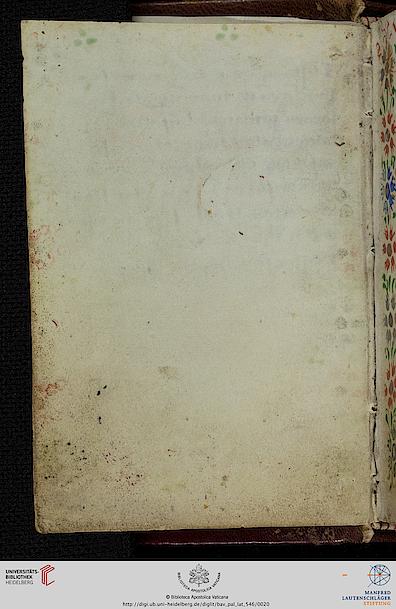 UNIVERSITÄTS-
BIBLIOTHEK
HEIDELBERG
BIBLIOTECA APOSTOLICA VATICANA
© Biblioteca Apostolica Vaticana
http://digi.ub.uni-heidelberg.de/diglit/bav_pal_lat_546/0020
MANFRED
LAUTENSCHLÄGER
STIFTUNG